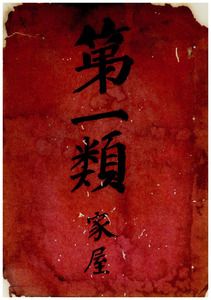 第一類
家屋